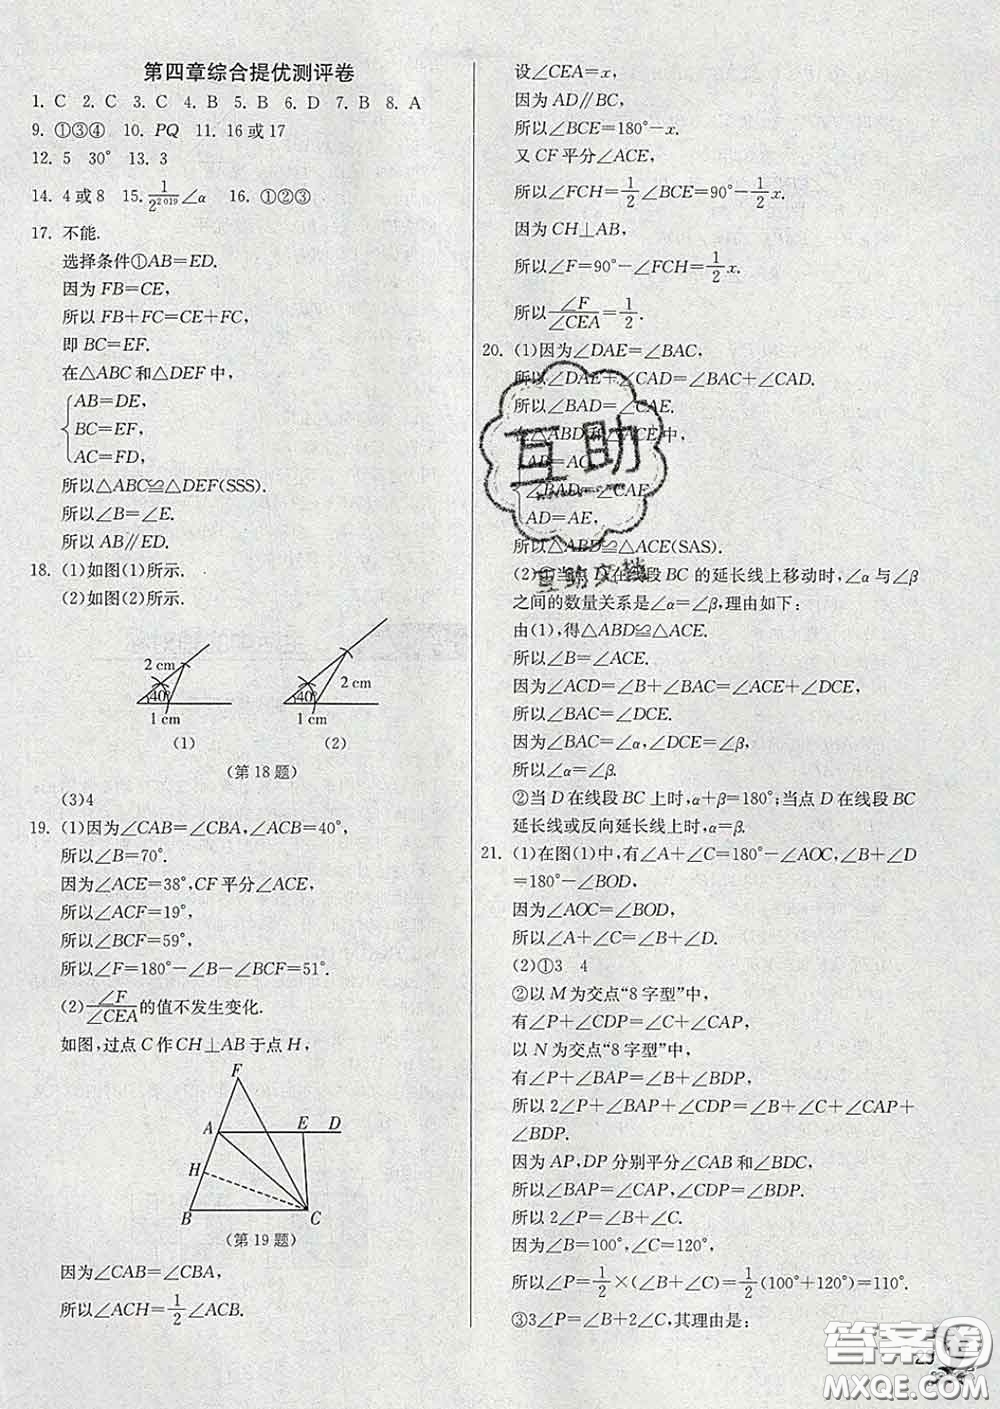 第四章综合提优测评卷
1. C  2. C  3. C  4. B  5. B  6. D  7. B  8. A
9. ①③④  10. PQ  11. 16或17
12. 5  30°  13. 3
14. 4或8  15. 1/2^2019∠α  16. ①②③
17. 不能.
选择条件①AB=ED.
因为FB=CE,
所以FB+FC=CE+FC,
即BC=EF.
在△ABC和△DEF中,
AB=DE,
BC=EF,
AC=FD,
所以△ABC≌△DEF(SSS).
所以∠B=∠E.
所以AB∥ED.
18. (1)如图(1)所示.
(2)如图(2)所示.
2 cm
40°
1 cm
(1)
2 cm
40°
1 cm
(2)
(第18题)
(3)4
19. (1)因为∠CAB=∠CBA,∠ACB=40°,
所以∠B=70°.
因为∠ACE=38°,CF平分∠ACE,
所以∠ACF=19°,
所以∠BCF=59°,
所以∠F=180°-∠B-∠BCF=51°.
(2)∠F/∠CEA的值不发生变化.
如图,过点C作CH⊥AB于点H,
F
A E D
H
B C
(第19题)
因为∠CAB=∠CBA,
所以∠ACH=1/2∠ACB.
设∠CEA=x,
因为AD∥BC,
所以∠BCE=180°-x.
又CF平分∠ACE,
所以∠FCH=1/2∠BCE=90°-1/2x.
因为CH⊥AB,
所以∠F=90°-∠FCH=1/2x.
所以∠F/∠CEA=1/2.
20. (1)因为∠DAE=∠BAC,
所以∠DAE+∠CAD=∠BAC+∠CAD.
所以∠BAD=∠CAE.
在△ABD和△ACE中,
AB=AC,
∠BAD=∠CAE,
AD=AE,
所以△ABD≌△ACE(SAS).
(2)①当点D在线段BC的延长线上移动时,∠α与∠β
之间的数量关系是∠α=∠β,理由如下:
由(1),得△ABD≌△ACE.
所以∠B=∠ACE.
因为∠ACD=∠B+∠BAC=∠ACE+∠DCE,
所以∠BAC=∠DCE.
因为∠BAC=∠α,∠DCE=∠β,
所以∠α=∠β.
②当D在线段BC上时,α+β=180°;当点D在线段BC
延长线或反向延长线上时,α=β.
21. (1)在图(1)中,有∠A+∠C=180°-∠AOC,∠B+∠D
=180°-∠BOD,
因为∠AOC=∠BOD,
所以∠A+∠C=∠B+∠D.
(2)①3  4
②以M为交点“8字型”中,
有∠P+∠CDP=∠C+∠CAP,
以N为交点“8字型”中,
有∠P+∠BAP=∠B+∠BDP,
所以2∠P+∠BAP+∠CDP=∠B+∠C+∠CAP+
∠BDP.
因为AP,DP分别平分∠CAB和∠BDC,
所以∠BAP=∠CAP,∠CDP=∠BDP,
所以2∠P=∠B+∠C.
因为∠B=100°,∠C=120°,
所以∠P=1/2×(∠B+∠C)=1/2(100°+120°)=110°.
③3∠P=∠B+2∠C,其理由是:
互助
互助文档
答案圈
MXQE.COM